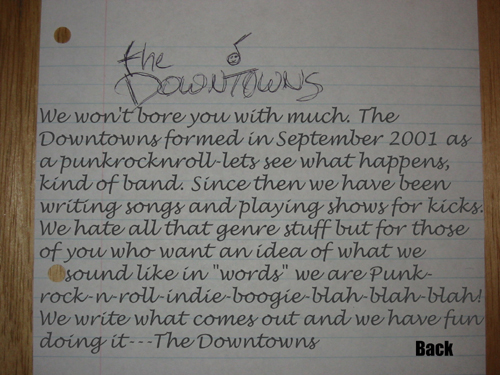 the
DOWNTOWNS
We won't bore you with much. The
Downtowns formed in September 2001 as
a punkrocknroll-lets see what happens,
kind of band. Since then we have been
writing songs and playing shows for kicks.
We hate all that genre stuff but for those
of you who want an idea of what we
sound like in "words" we are Punk-
rock-n-roll-indie-boogie-blah-blah-blah!
We write what comes out and we have fun
doing it---The Downtowns
Back